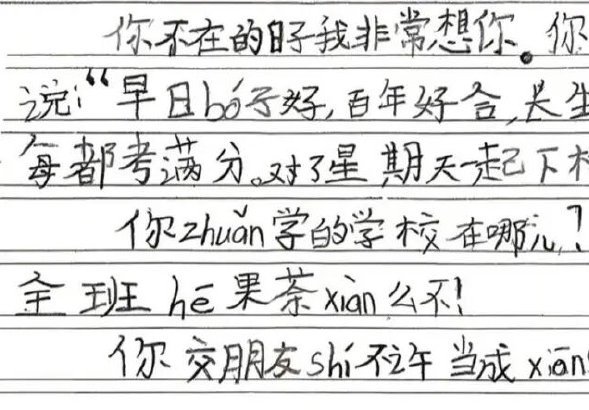 你不在的日子我非常想你。你
说:“早日bó子好,百年好合,长生
每都考满分。对了星期天一起下
你zhuǎn学的学校在哪儿?
全班hē果茶xiàn么不!
你交朋友shí不许当成